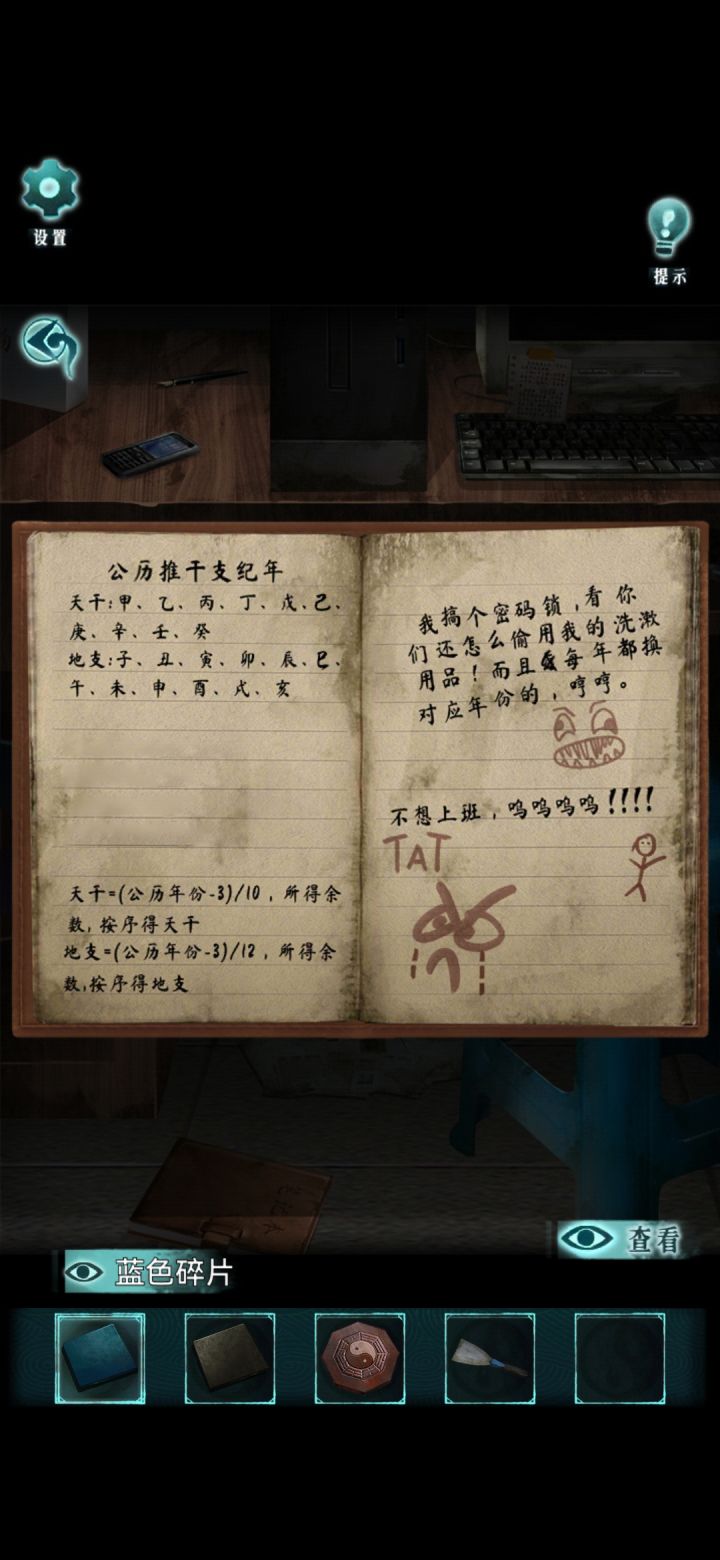 设置
提示
公历推干支纪年
天干:甲、乙、丙、丁、戊、己、
庚、辛、壬、癸
地支:子、丑、寅、卯、辰、巳、
午、未、申、酉、戌、亥
天干=(公历年份-3)/10，所得余
数，按序得天干
地支=(公历年份-3)/12，所得余
数，按序得地支
我搞个密码锁，看你
们还怎么偷用我的洗漱
用品！而且每年都换
对应年份的，哼哼。
不想上班，呜呜呜呜!!!!
TAT
查看
蓝色碎片